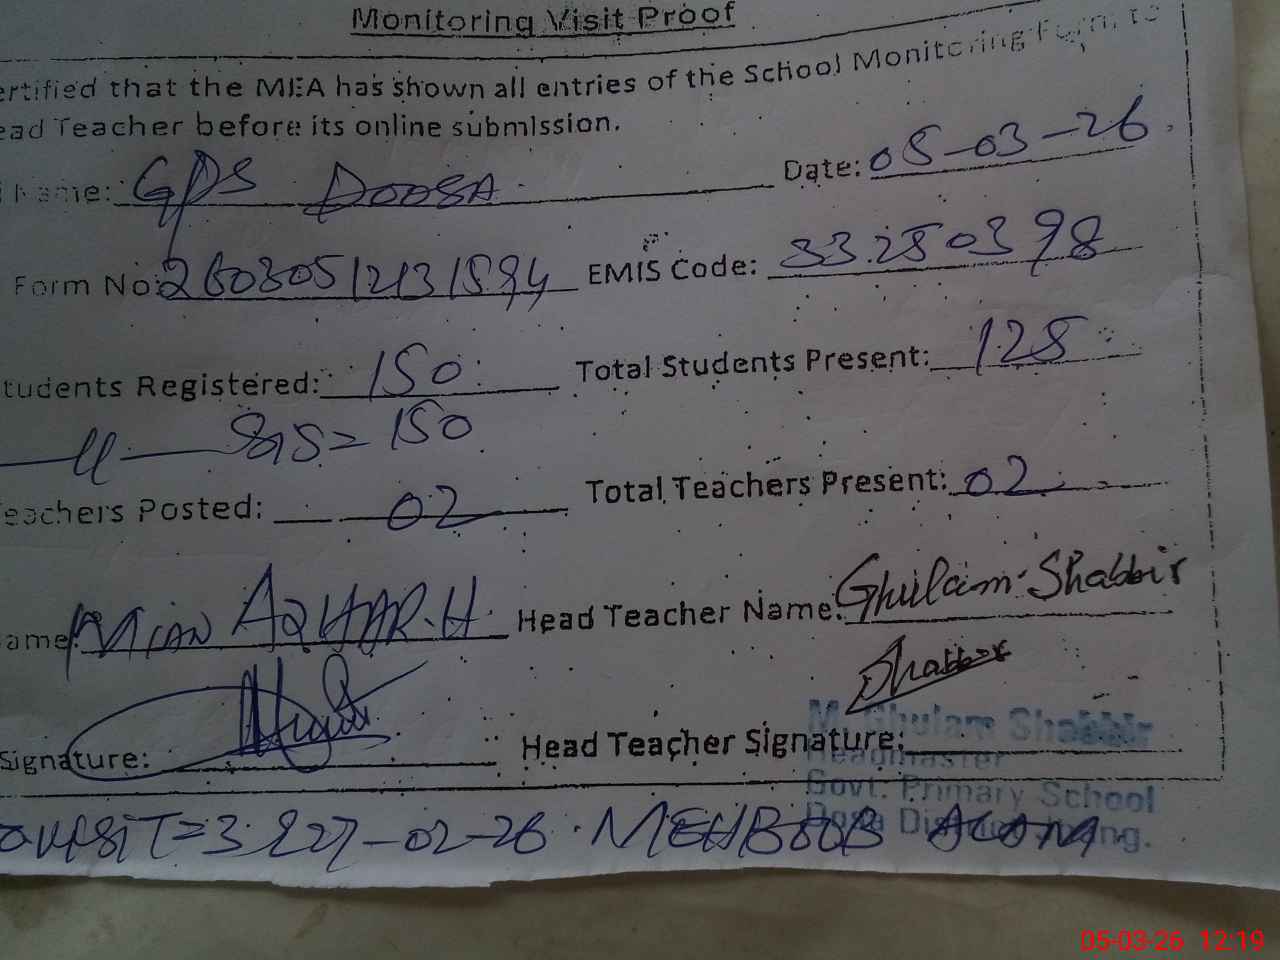 Monitoring Visit Proof
ertified that the MEA has shown all entries of the School Monitoring Form to
ead Teacher before its online submission.
Name: GPS DOOSA Date: 05-03-26
Form No: 26030512131594 EMIS Code: 33250398
tudents Registered: 150 Total Students Present: 125
SIS = 150
eachers Posted: 02 Total Teachers Present: 02
ame: MIAN AZHAR.H Head Teacher Name: Ghulam Shabbir
Shabbir
Signature: Head Teacher Signature:
M. Ghulam Shabbir
Headmaster
Govt. Primary School
District Jhang.
27-02-26 MEHBOOB
05-03-26 12:19